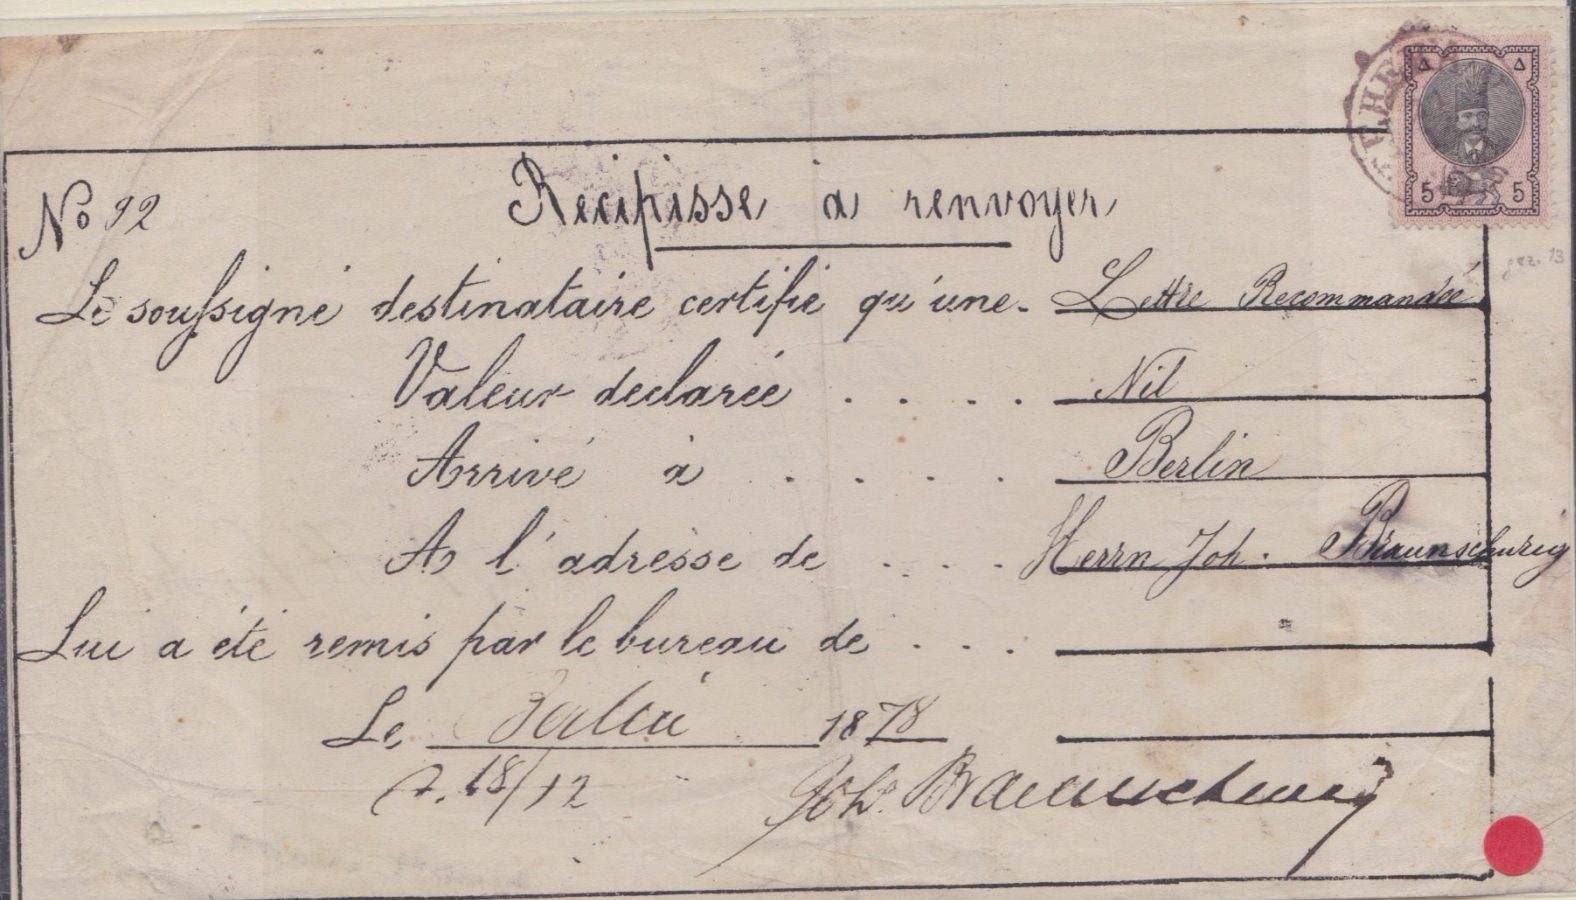 TEHERAN
5 5
No 92
Recipisse à renvoyer
gez. 13
Le soussigné destinataire certifie qu'une Lettre Recommandée
Valeur declarée . . . . Nil
Arrivé à . . . . Berlin
A l'adresse de . . . . Herrn Joh. Braunschweig
Lui a été remis par le bureau de . . .
Le Berlin 1878
d. 18/12 Joh. Braunschweig